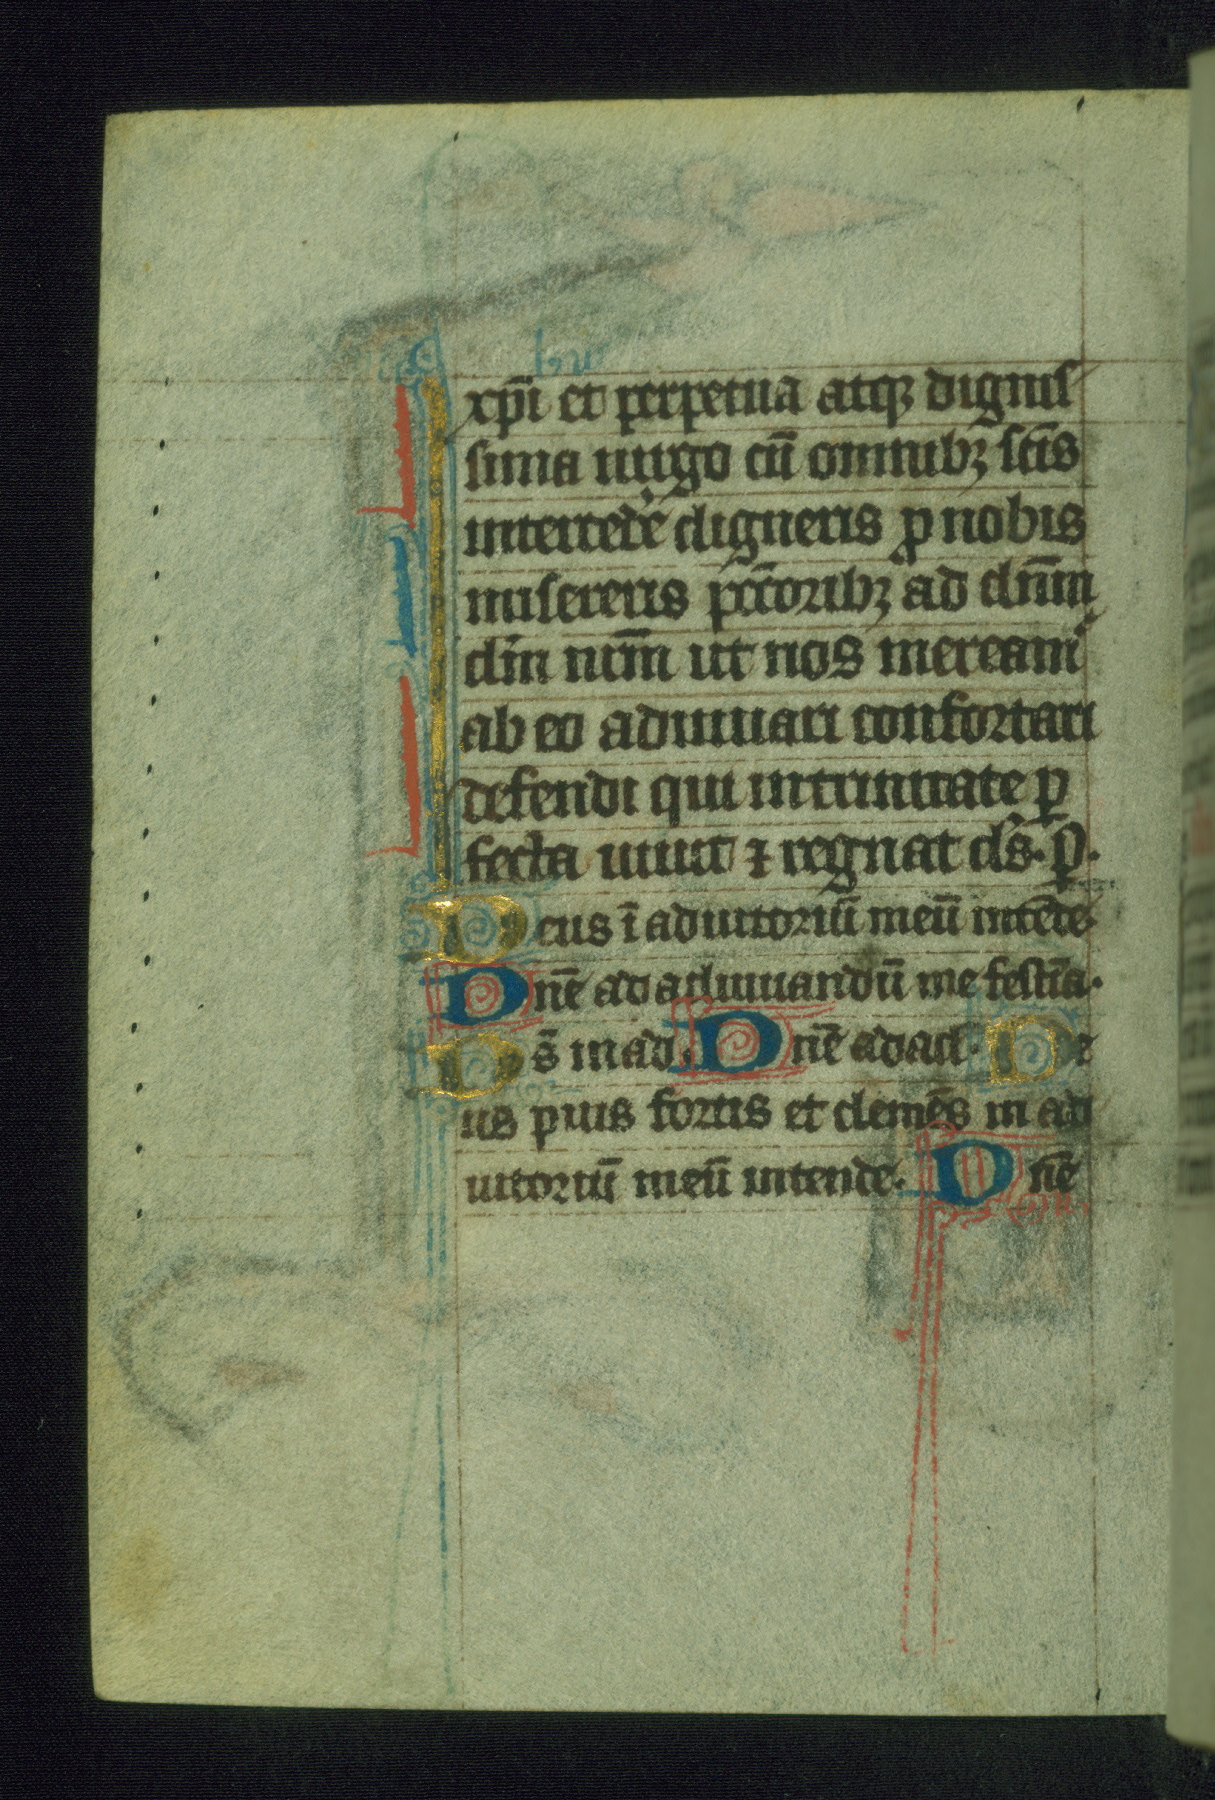 xp̄i et perpetua atqꝫ dignis
sima uirgo cū omnibꝫ sc̄is
intercedē digneris ꝓ nobis
miseris pcc̄toribꝫ ad dn̄m
dm̄ nr̄m ut nos meream̄
ab eo adiuuari confortari
defendi qui in trinitate ꝑ
fecta uiuit ⁊ regnat ds̄. ꝑ.
Deus ī adiutoriū meū intēde
Dn̄e ad adiuuandū me festīa.
Ds̄ in ad. Dn̄e ad ad. De
us pius fortis et clemēs in ad
iutoriū meū intende. Dn̄e